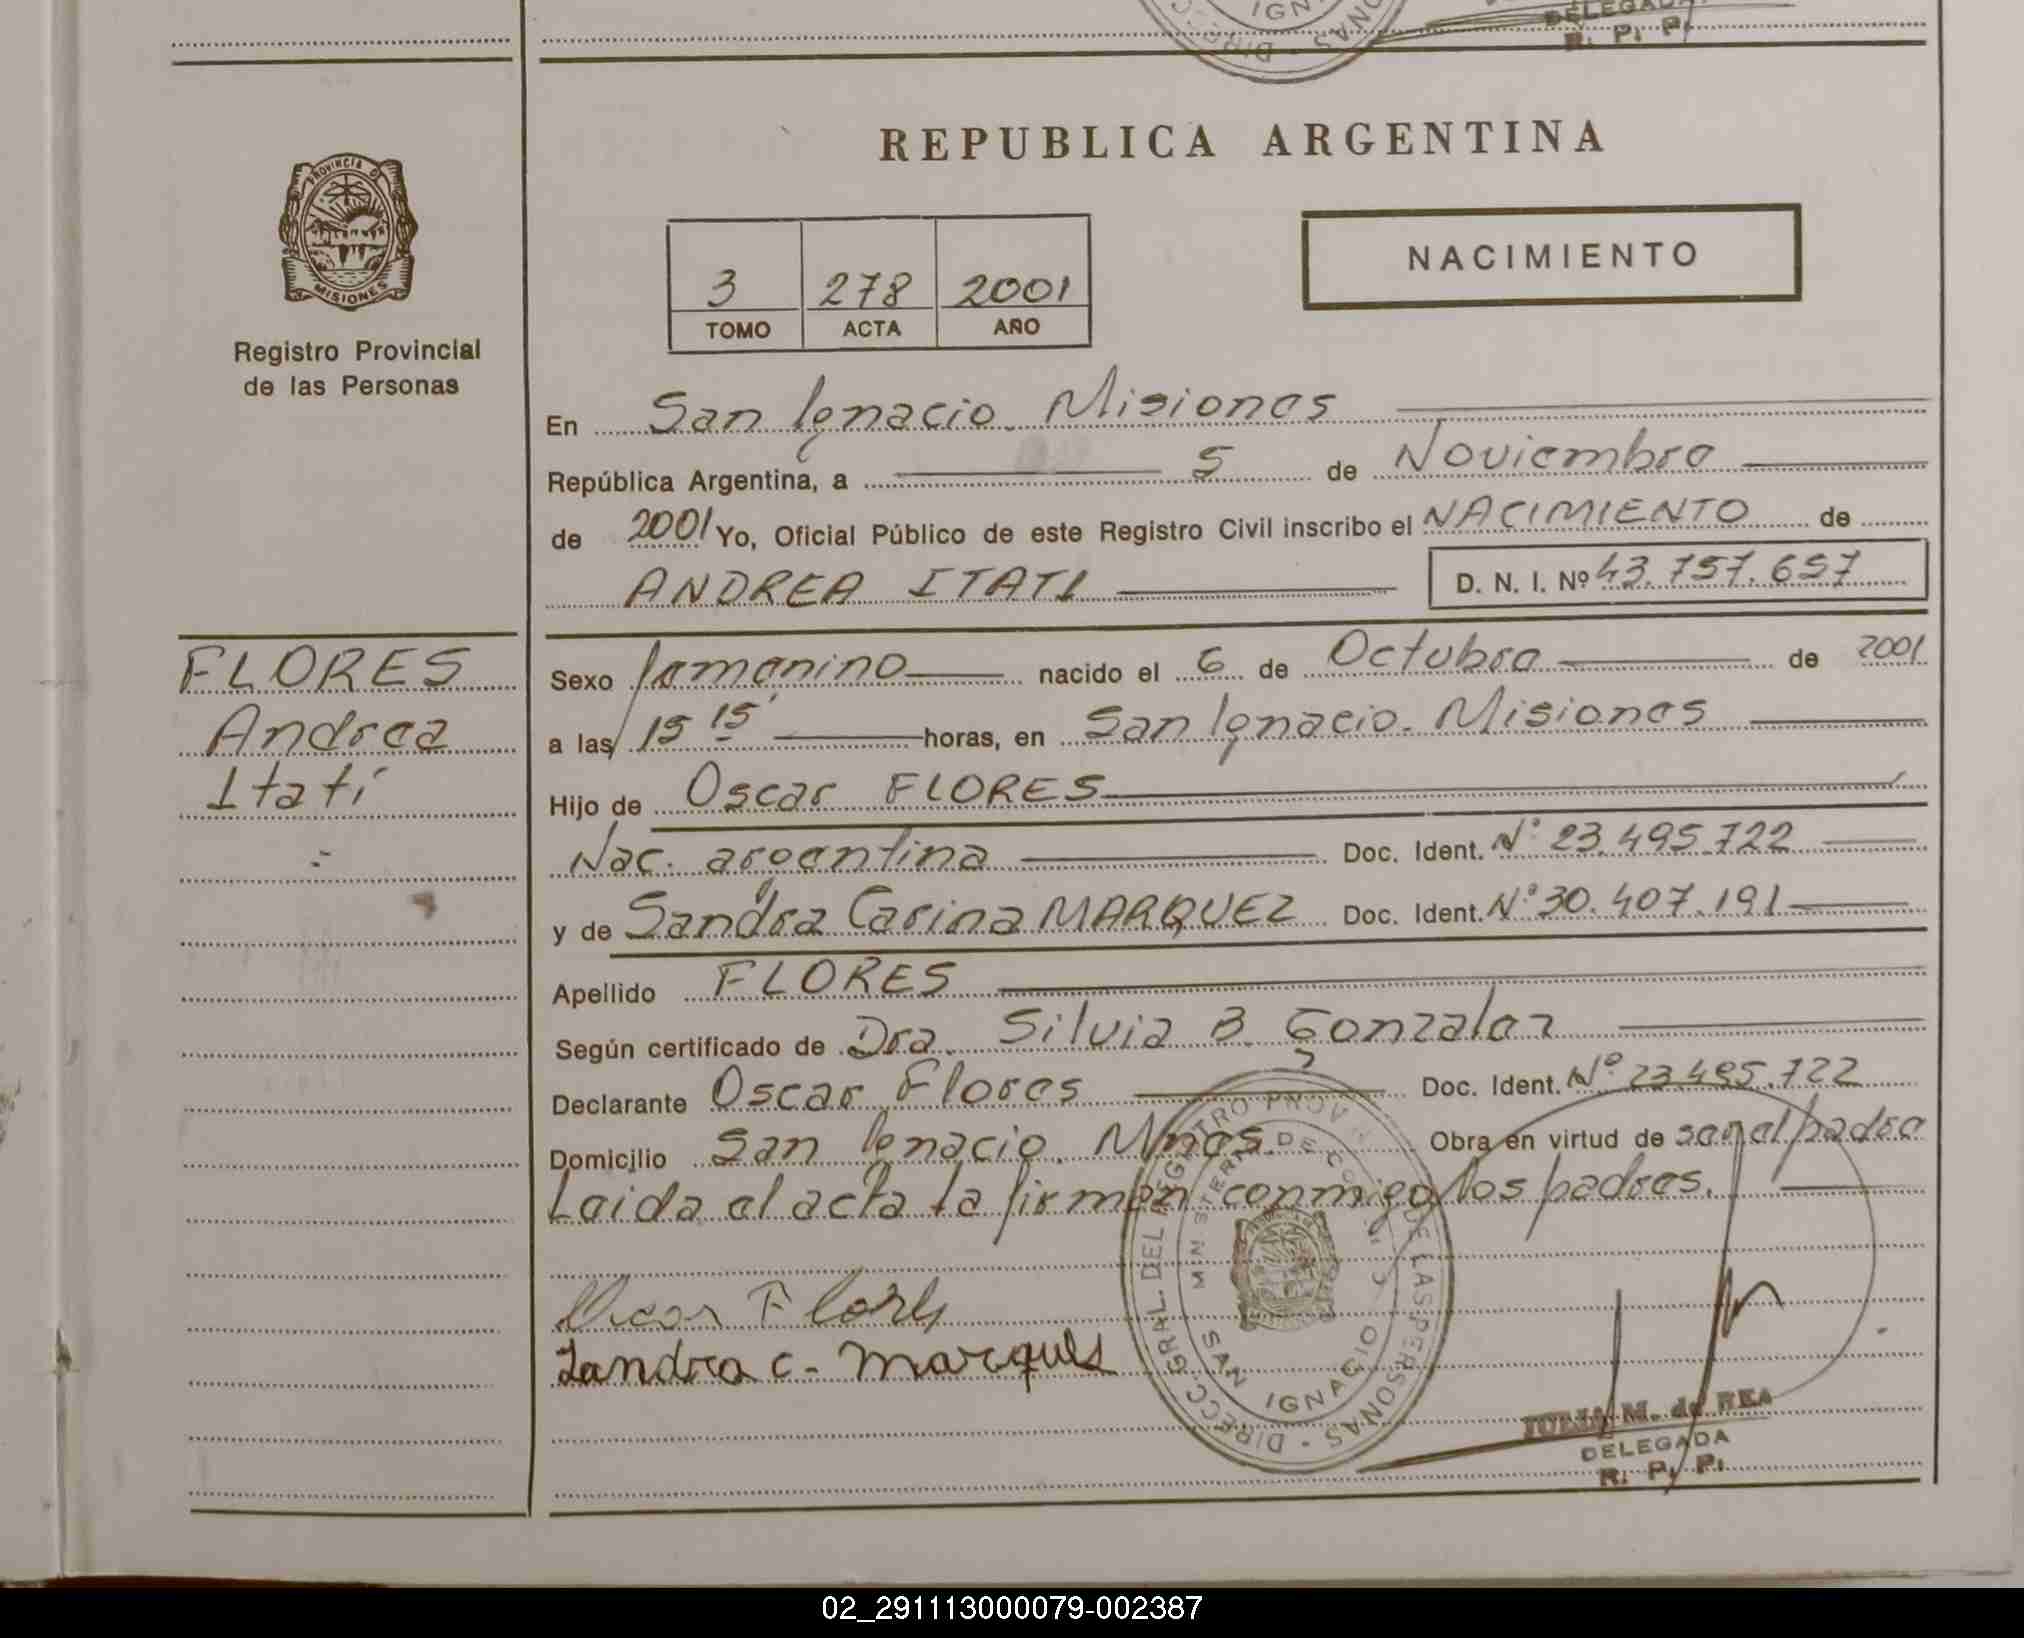 DELEGADA
R. P. P.
REPUBLICA ARGENTINA
PROVINCIA D
MISIONES
Registro Provincial
de las Personas
3 278 2001
TOMO ACTA AÑO
NACIMIENTO
En San Ignacio. Misiones
República Argentina, a 5 de Noviembre
de 2001 Yo, Oficial Público de este Registro Civil inscribo el NACIMIENTO de
ANDREA ITATI D. N. I. Nº 43.757.657
FLORES
Andrea
Itatí
Sexo femenino nacido el 6 de Octubre de 2001
a las 15 15' horas, en San Ignacio. Misiones
Hijo de Oscar FLORES
Nac. argentina Doc. Ident. Nº 23.495.722
y de Sandra Carina MARQUEZ Doc. Ident. Nº 30.407.191
Apellido FLORES
Según certificado de Dra. Silvia B. Gonzalez
Declarante Oscar Flores Doc. Ident. Nº 23.495.722
Domicilio San Ignacio. Mnes. Obra en virtud de ser el padre
Leida el acta la firman conmigo los padres.
Oscar Flores
Sandra C. Marques
DIRECC. GRAL. DEL REGISTRO PROV. DE LAS PERSONAS
SAN IGNACIO
JULIA M. de REA
DELEGADA
R. P. P.
02_291113000079-002387